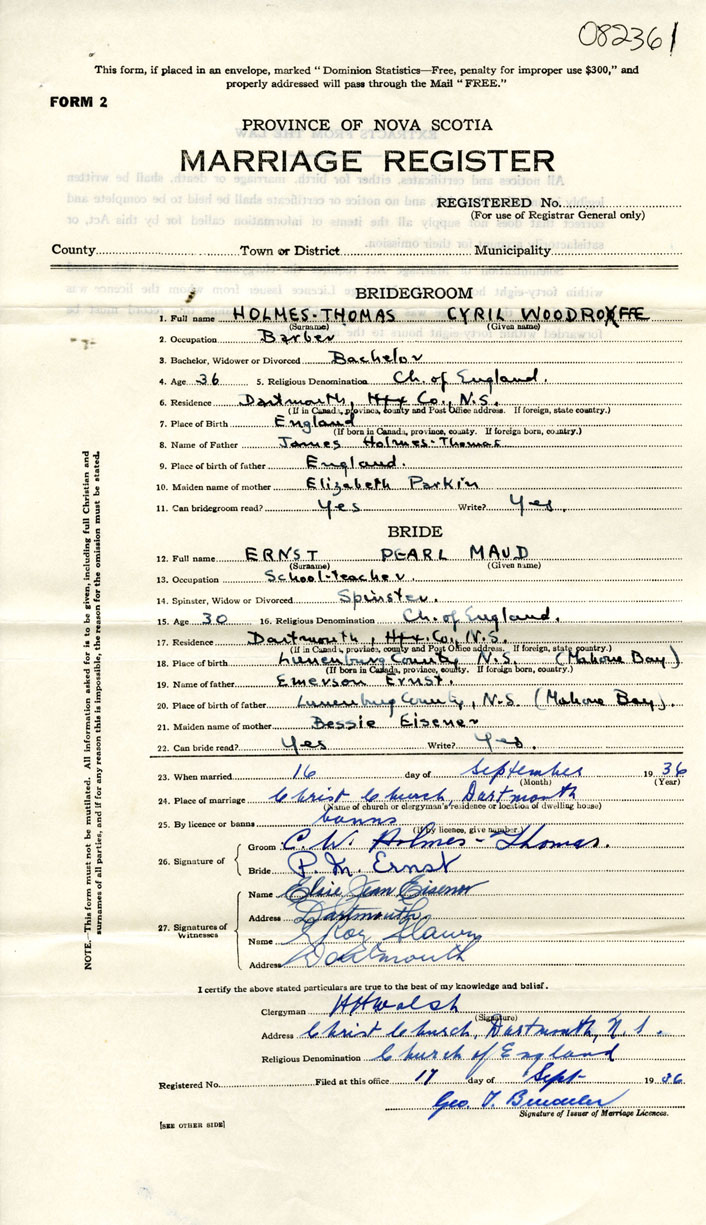 082361
This form, if placed in an envelope, marked "Dominion Statistics—Free, penalty for improper use $300," and
properly addressed will pass through the Mail "FREE."
FORM 2
PROVINCE OF NOVA SCOTIA
MARRIAGE REGISTER
REGISTERED No.
(For use of Registrar General only)
County Town or District Municipality
BRIDEGROOM
1. Full name HOLMES-THOMAS CYRIL WOODROFFE
(Surname) (Given name)
2. Occupation Barber
3. Bachelor, Widower or Divorced Bachelor
4. Age 36 5. Religious Denomination Ch. of England.
6. Residence Dartmouth, Hfx Co., N.S.
(If in Canada, province, county and Post Office address. If foreign, state country.)
7. Place of Birth England
(If born in Canada, province, county. If foreign born, country.)
8. Name of Father James Holmes-Thomas
9. Place of birth of father England.
10. Maiden name of mother Elizabeth Parkin
11. Can bridegroom read? Yes Write? Yes.
BRIDE
12. Full name ERNST PEARL MAUD
(Surname) (Given name)
13. Occupation School-teacher.
14. Spinster, Widow or Divorced Spinster.
15. Age 30 16. Religious Denomination Ch. of England.
17. Residence Dartmouth, Hfx. Co., N.S.
(If in Canada, province, county and Post Office address. If foreign, state country.)
18. Place of birth Lunenburg County N.S. (Mahone Bay)
(If born in Canada, province, county. If foreign born, country.)
19. Name of father Emerson Ernst.
20. Place of birth of father Lunenburg County, N.S. (Mahone Bay).
21. Maiden name of mother Bessie Eisener
22. Can bride read? Yes Write? Yes.
23. When married 16 day of September 1936
(Month) (Year)
24. Place of marriage Christ Church, Dartmouth
(Name of church or clergyman's residence or location of dwelling house)
25. By licence or banns banns
(If by licence, give number)
26. Signature of
Groom C. W. Holmes-Thomas.
Bride P. M. Ernst
27. Signatures of Witnesses
Name Elsie Jean Eisenor
Address Dartmouth
Name
Address Dartmouth
I certify the above stated particulars are true to the best of my knowledge and belief.
Clergyman HHWalsh
(Signature)
Address Christ Church, Dartmouth, N.S.
Religious Denomination Church of England
Registered No. Filed at this office 17 day of Sept 1936
Geo. T.
Signature of Issuer of Marriage Licences.
[SEE OTHER SIDE]
NOTE.—This form must not be mutilated. All information asked for is to be given, including full Christian and
surnames of all parties, and if for any reason this is impossible, the reason for the omission must be stated.